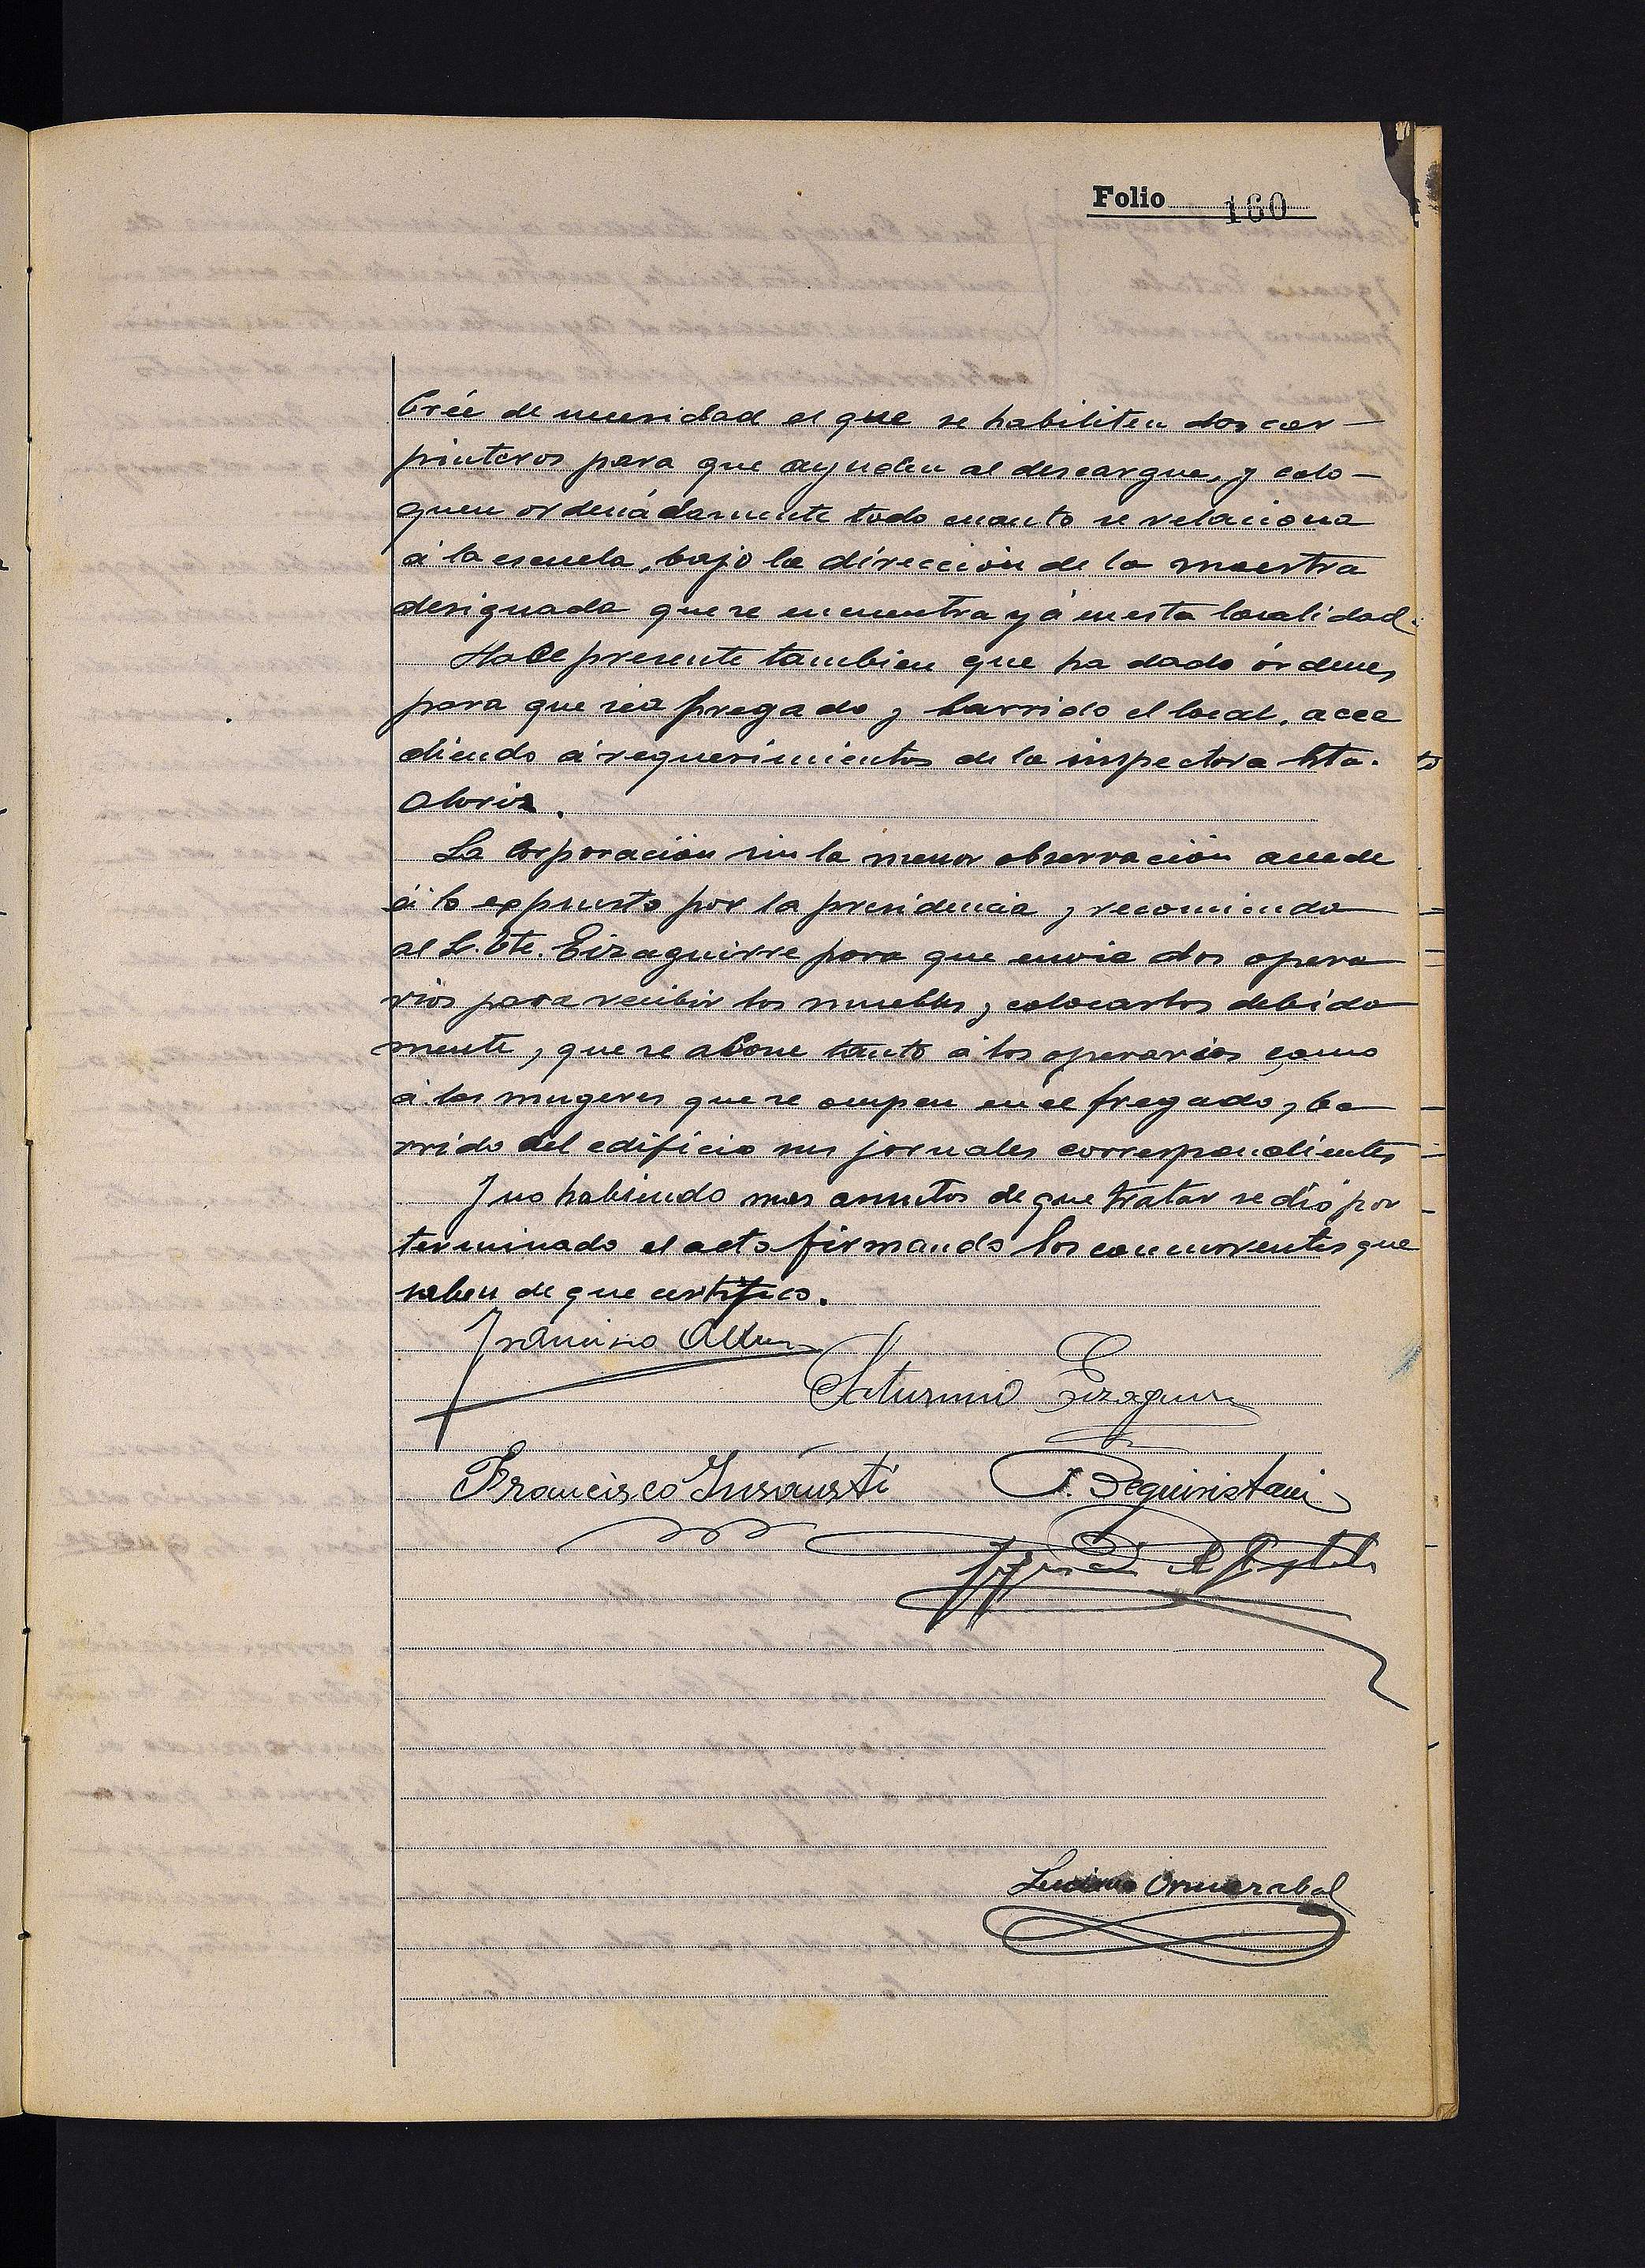 Folio 160
Crée de necesidad el que se habiliten dos car-
pinteros para que ayuden al descargue, y colo-
quen ordenádamente todo cuanto se relaciona
á la escuela, bajo la dirección de la maestra
designada que se encuentra yá en esta localidad.
Hace presente tambien que ha dado órdenes
para que sea fregado y barrido el local, acce
diendo á requerimientos de la inspectora Srta.
Aloriz.
La Corporación sin la menor observación accede
á lo expuesto por la presidencia y recomienda
al S. Tte. Eizaguirre para que envie dos opera
rios para recibir los muebles y colocarlos debida
mente, que se abone tanto á los operarios como
á las mugeres que se ocupen en el fregado y ba
rrido del edificio sus jornales correspondientes
Y no habiendo mas asuntos de que tratar se dió por
terminado el acto firmando los concurrentes que
saben de que certifico.
Francisco
Saturnino Eizaguirre
Francisco Insausti
J. Beguiristain
Luciano Ormazabal